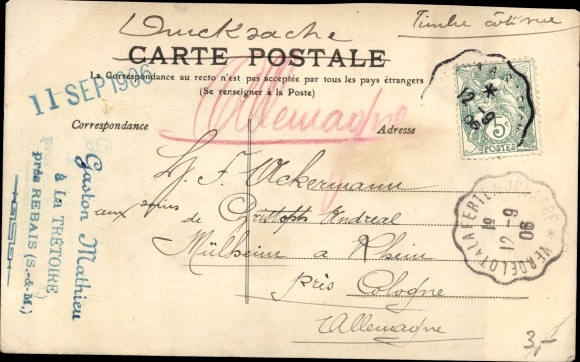 Drucksache
Timbre côté vue
CARTE POSTALE
La Correspondance au recto n'est pas acceptée par tous les pays étrangers
(Se renseigner à la Poste)
11 SEP 1906
Allemagne
Correspondance
Adresse
5c
POSTES
H. F. Ackermann
aux soins de Christoph Andreae
Mülheim a Rhein
près Cologne
Allemagne
Gaston Mathieu
à La TRÉTOIRE
près REBAIS (S.-&-M.)
VERDELOT A LA FERTÉ
12 -9
06
3,-